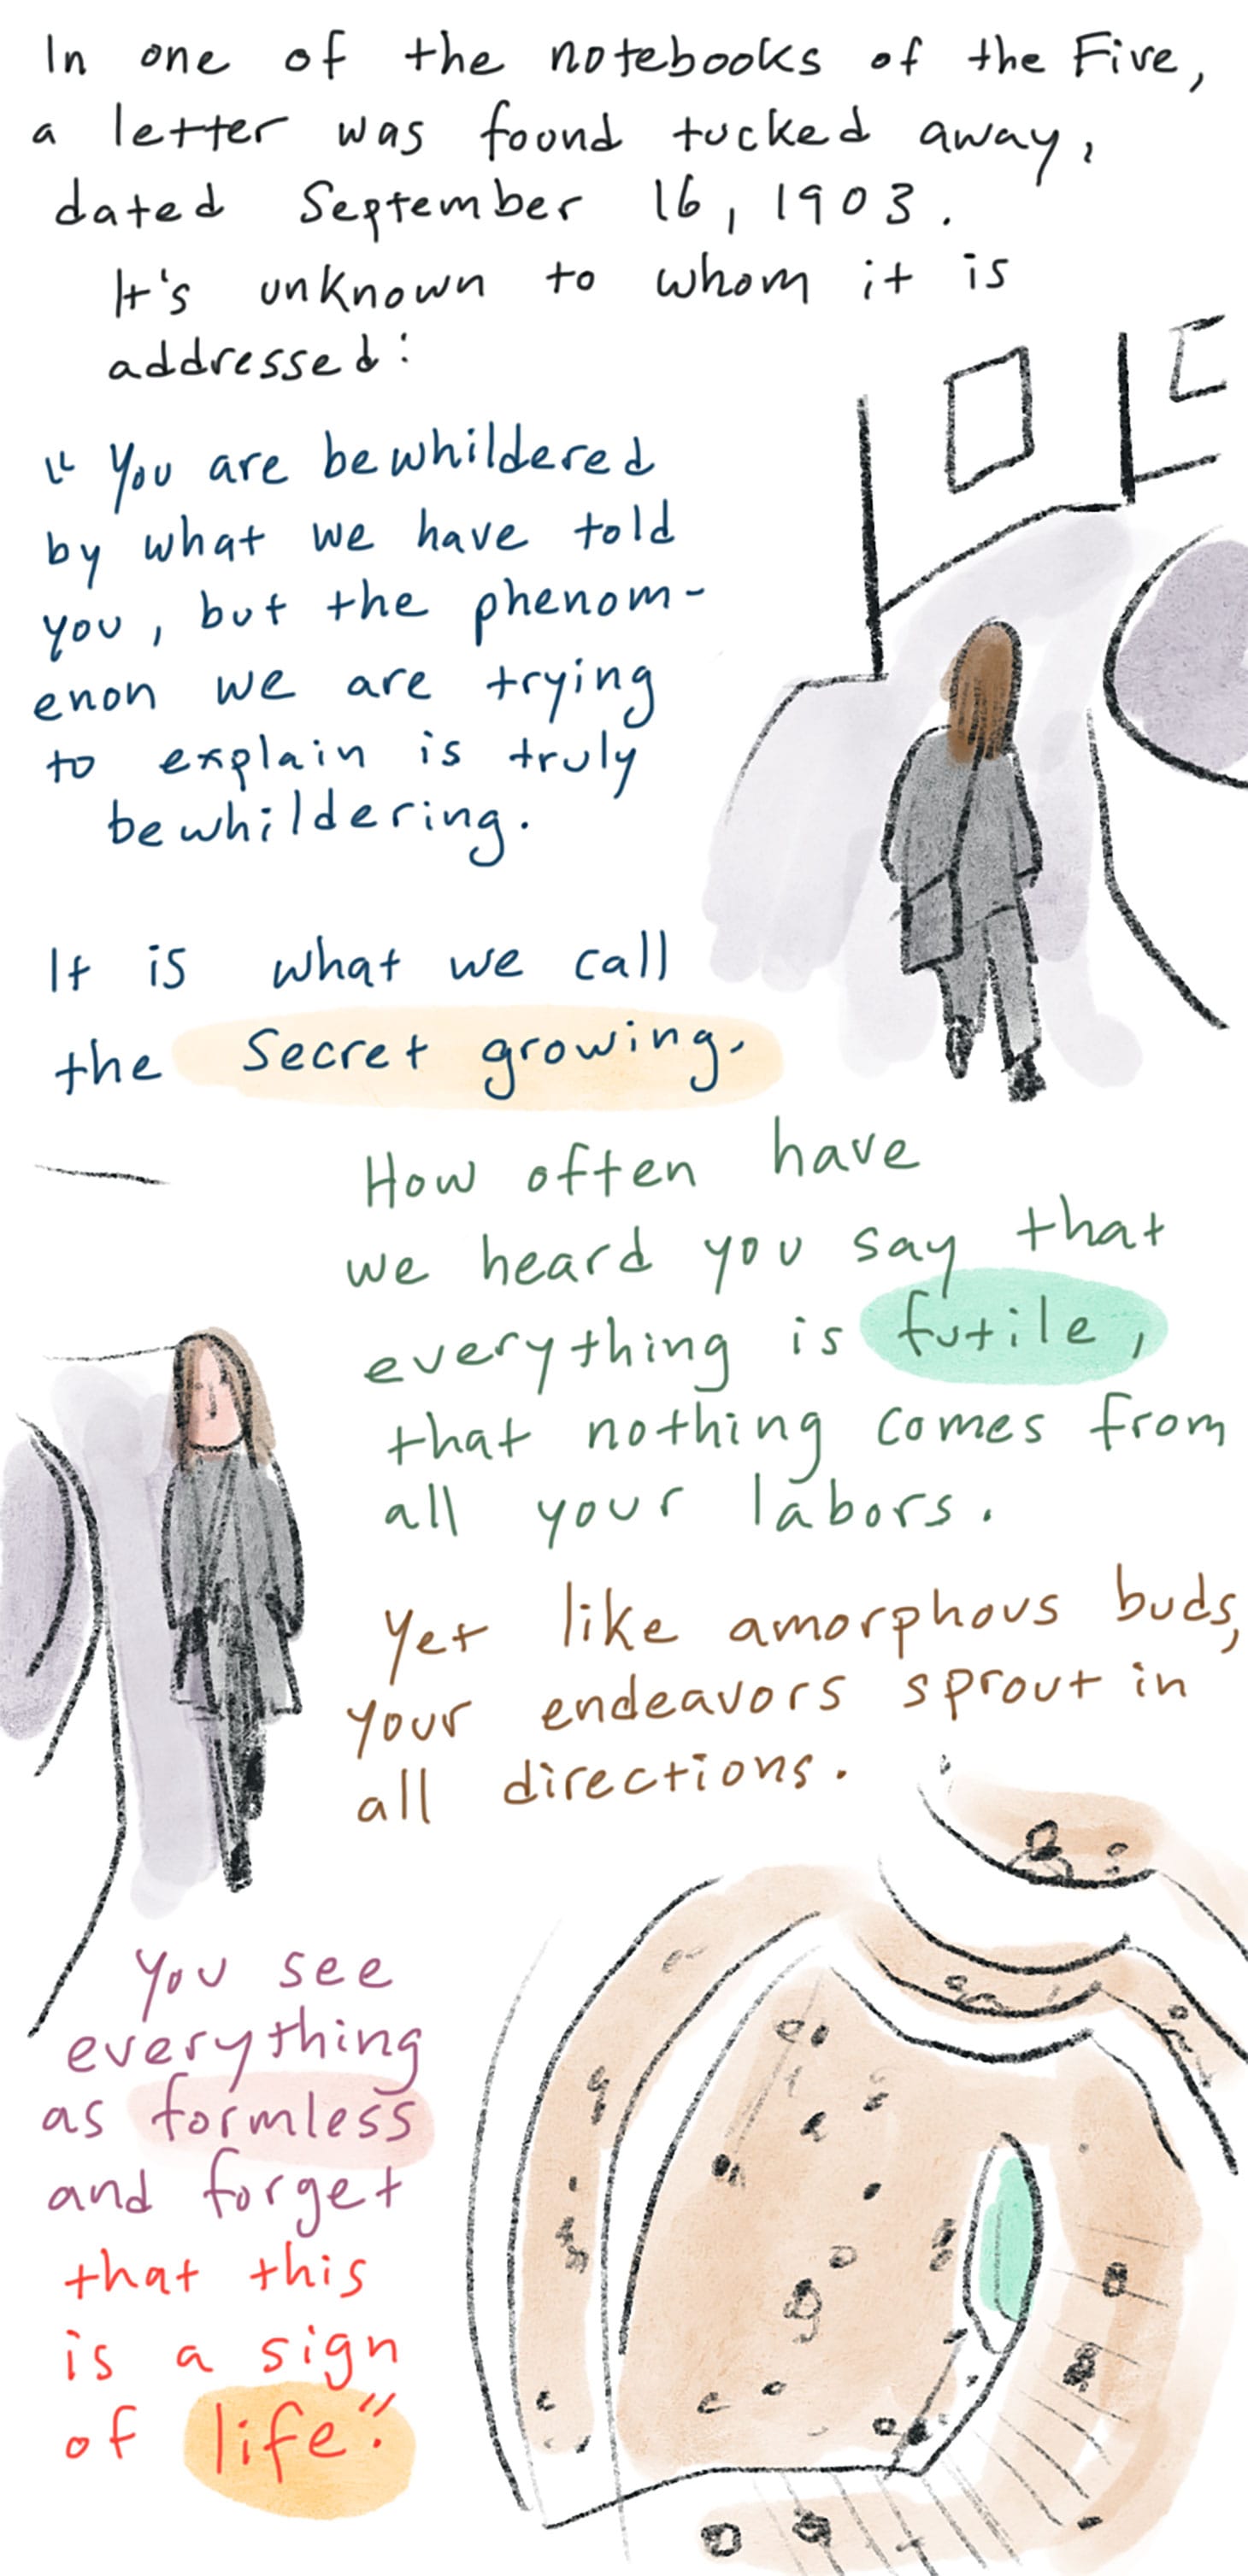 In one of the notebooks of the Five,
a letter was found tucked away,
dated September 16, 1903.
It's unknown to whom it is
addressed:
"You are bewhildered
by what we have told
you, but the phenom-
enon we are trying
to explain is truly
bewhildering.
It is what we call
the Secret growing.
How often have
we heard you say that
everything is futile,
that nothing comes from
all your labors.
Yet like amorphous buds,
your endeavors sprout in
all directions.
You see
everything
as formless
and forget
that this
is a sign
of life".